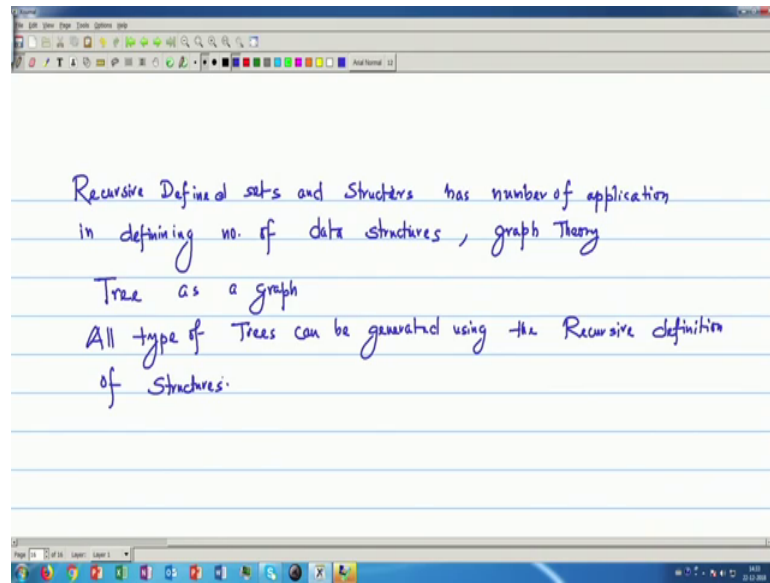 Journal
File Edit View Page Tools Options Help
Arial Normal 12
Recursive Defined sets and Structers has number of application
in definining no. of data structures, graph Theory
Tree as a graph
All type of Trees can be generated using the Recursive definition
of Structures.
Page 16 of 16 Layer: Layer 1
14:33
22-12-2018